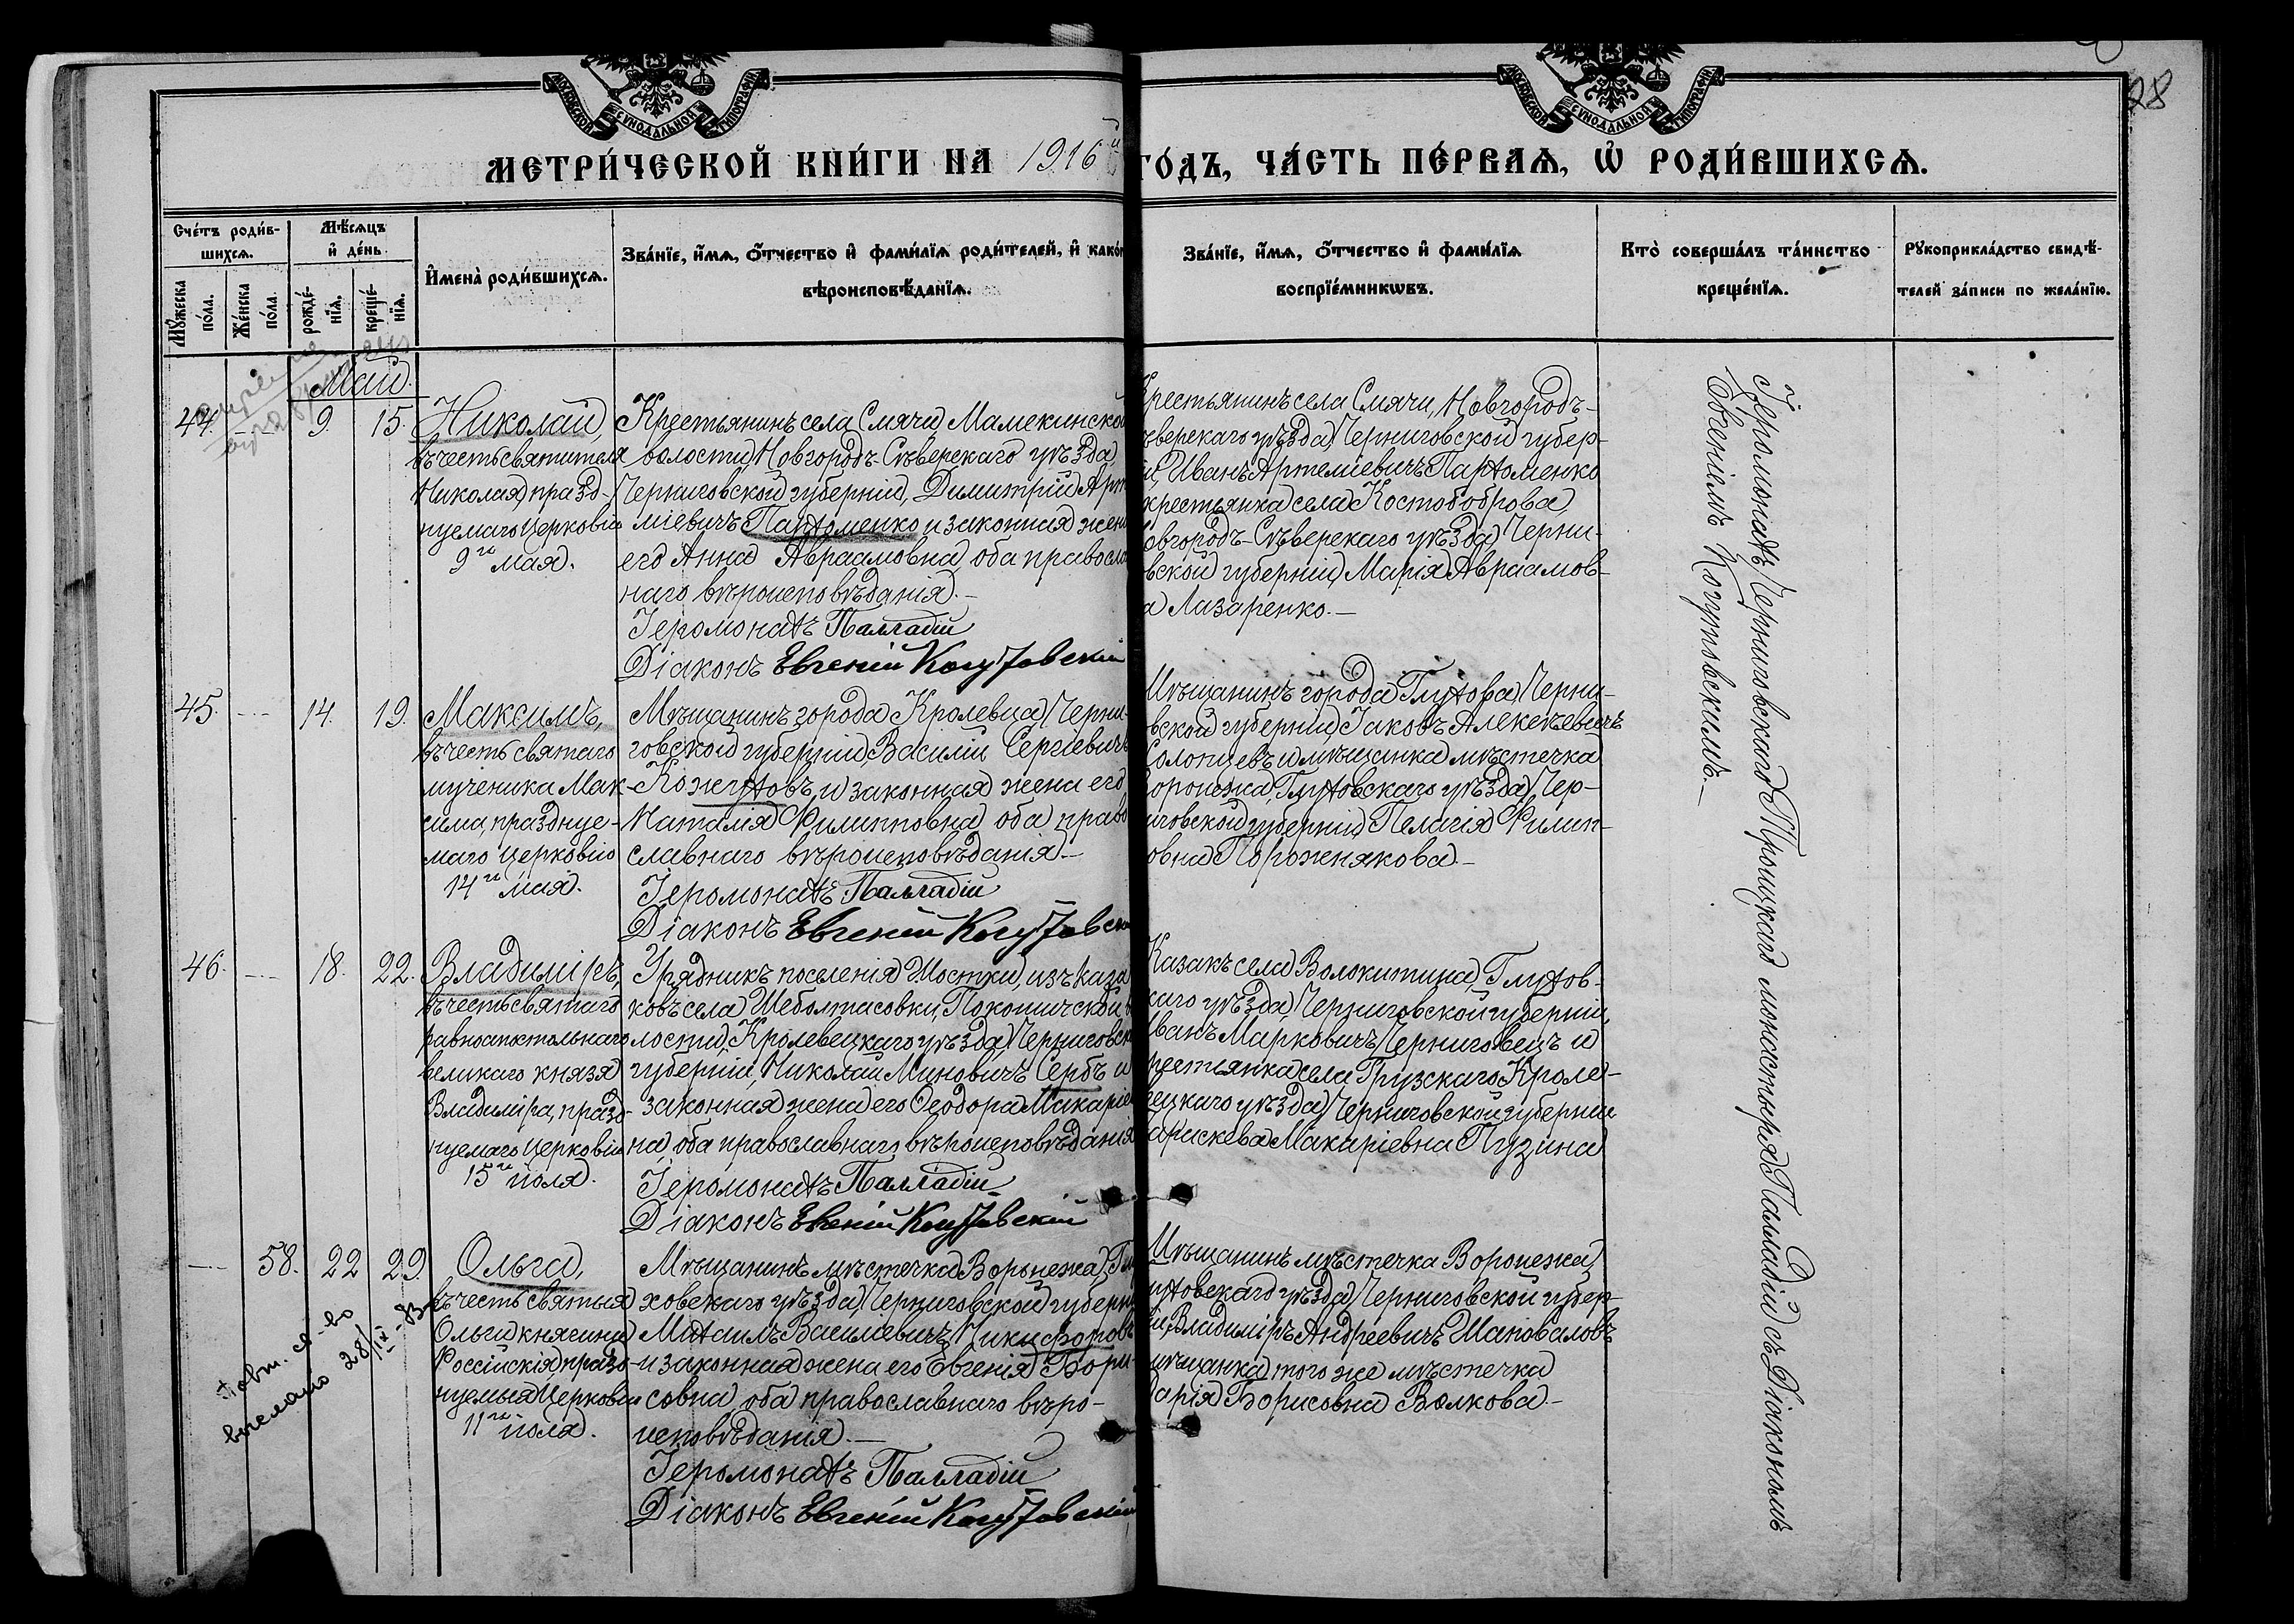 28
МОСКОВСКОЙ СѴНОДАЛЬНОЙ ТИПОГРАФІИ
МОСКОВСКОЙ СѴНОДАЛЬНОЙ ТИПОГРАФІИ
МЕТРИ́ЧЕСКОЙ КНИ́ГИ НА 1916й ГО́ДЪ, ЧА́СТЬ ПЕ́РВАѦ, Ѡ҆ РОДИ́ВШИХСѦ.
Сче́тъ роди́в-
шихсѧ.
Мꙋ́жеска по́ла.
Же́нска по́ла.
Мѣ́сѧцъ
и҆ де́нь
рожде́-
нїѧ.
креще́-
нїѧ.
И҆мена̀ роди́вшихсѧ.
Зва́нїе, и҆́мѧ, ѻ҆́тчество и҆ фами́лїѧ роди́телей, и҆ како́
вѣроисповѣ́данїѧ.
Зва́нїе, и҆́мѧ, ѻ҆́тчество и҆ фами́лїѧ
воспрїе́мникѡвъ.
Кто̀ соверша́лъ та́инство
креще́нїѧ.
Рꙋкоприкла́дство свидѣ́-
телей за́писи по жела́нїю.
Май.
44. -- 9. 15.
Николай,
въ честь святителя
Николая, празд-
нуемаго церковію
9го мая.
Крестьянинъ села Смячи, Мамекинской
волости, Новгородъ-Сѣверскаго уѣзда,
Черниговской губерніи, Димитрій Арте
міевичъ Пархоменко и законная жена
его Анна Авраамовна, оба правосла
наго вѣроисповѣданія.—
Іеромонахъ Палладій
Діаконъ Евгеній Когутовскій
Крестьянинъ села Смячи, Новгородъ-
Сѣверскаго уѣзда, Черниговской губер-
ніи, Иванъ Артеміевичъ Пархоменко
крестьянка села Костобоброва,
Новгородъ-Сѣверскаго уѣзда, Черни-
говской губерніи, Марія Авраамов-
на Лазаренко.—
45. -- 14. 19.
Максимъ,
въ честь святаго
мученика Мак-
сима, праздну­е-
маго церковію
14го мая.
Мѣщанинъ города Кролевца, Черни-
говской губерніи, Василій Сергіевичъ
Кожуховъ, и законная жена его
Наталія Филипповна, оба право
славнаго вѣроисповѣданія.—
Іеромонахъ Палладій
Діаконъ Евгеній Когутовскій
Мѣщанинъ города Глухова, Черни-
говской губерніи, Іаковъ Алексѣевичъ
Солопцевъ и мѣщанка мѣстечка
Воронежа, Глуховскаго уѣзда, Чер-
ниговской губерніи, Пелагія Филип-
повна Порожнякова.—
46. -- 18. 22.
Владиміръ,
въ честь святаго
равноапостольнаго
великаго князя
Владиміра, празд-
нуемаго церковію
15го іюля.
Урядникъ поселенія Шостки, изъ каза
ковъ села Шеболтасовки, Покошичской во
лости, Кролевецкаго уѣзда, Черниговской
губерніи, Николай Миновичъ Сербъ и
законная жена его Ѳеодора Макаріев
на, оба православнаго вѣроисповѣданія
Іеромонахъ Палладій
Діаконъ Евгеній Когутовскій
Казакъ села Волокитина, Глухов-
скаго уѣзда, Черниговской губерніи,
Иванъ Марковичъ Черниговецъ и
крестьянка села Грузскаго, Кроле-
вецкаго уѣзда, Черниговской губерніи
Параскева Макаріевна Пузина
-- 58. 22 29.
Ольга,
въ честь святыя
Ольги княгини
Россійскія, празд-
нуемыя церковію
11го іюля.
Мѣщанинъ мѣстечка Воронежа, Глу
ховскаго уѣзда, Черниговской губерніи
Михаилъ Василіевичъ Никифоровъ
и законная жена его Евгенія Бори-
совна, оба православнаго вѣро-
исповѣданія.—
Іеромонахъ Палладій
Діаконъ Евгеній Когутовскій
Мѣщанинъ мѣстечка Воронежа,
Глуховскаго уѣзда, Черниговской губер-
ніи, Владиміръ Андреевичъ Шаповаловъ
мѣщанка того же мѣстечка
Марія Борисовна Волкова.—
Повт. св-во
выслано 28/IX-83г
Іеромонахъ Черниговскаго Троицкаго монастыря Палладій съ Діакономъ
Евгеніемъ Когутовскимъ.—